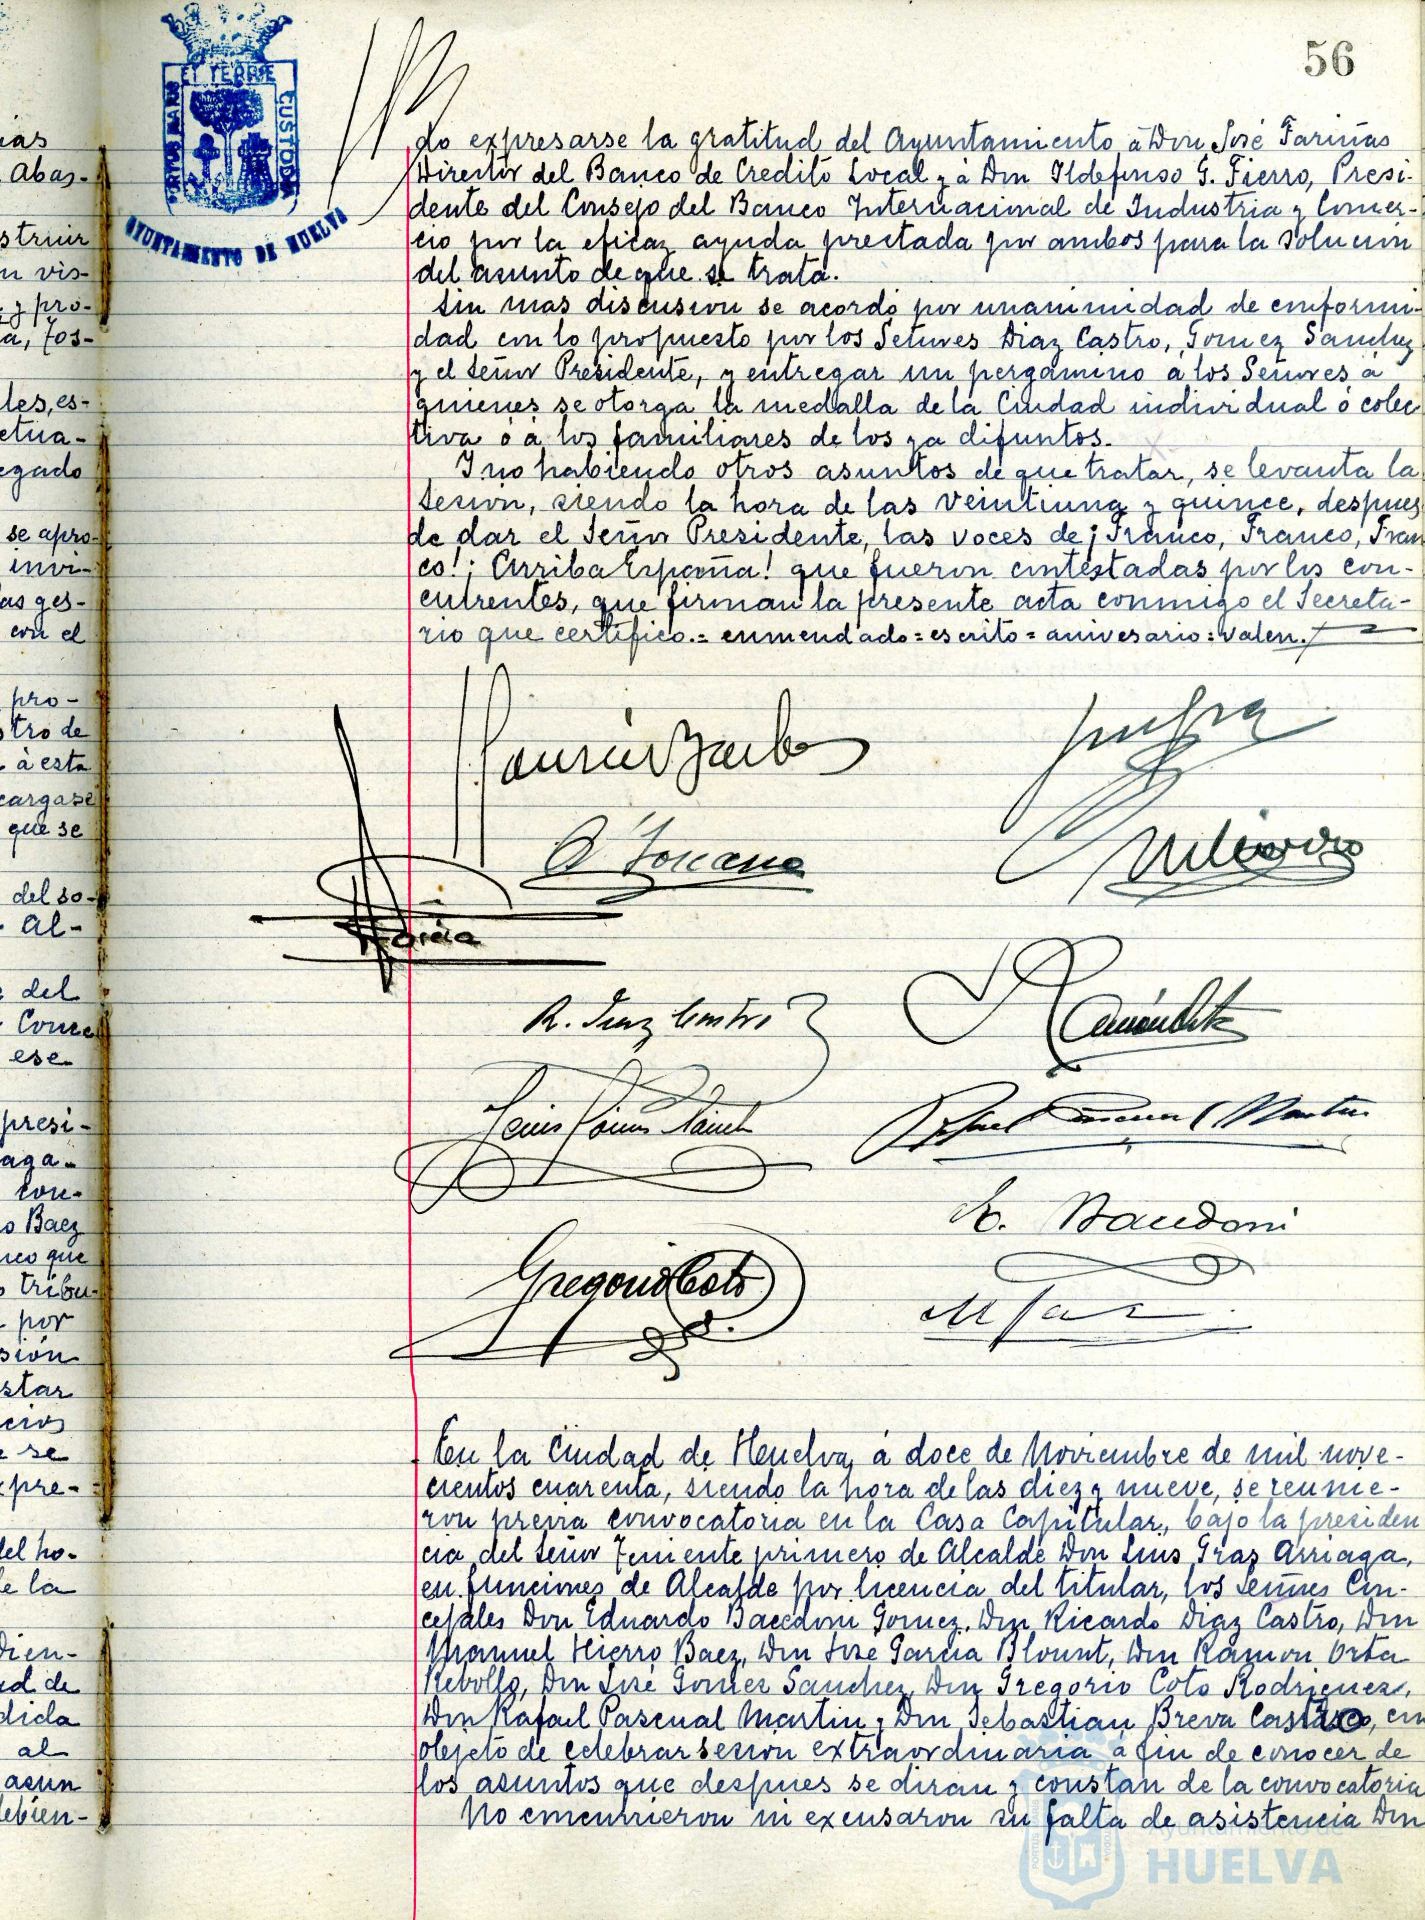 56
ET TERRAE
PORTUS MARIS
CUSTODIA
AYUNTAMIENTO DE HUELVA
do expresarse la gratitud del Ayuntamiento á Don José Fariñas
Director del Banco de Credito Local y á Don Ildefonso G. Fierro, Presi-
dente del Consejo del Banco Internacional de Industria y Comer-
cio por la eficaz ayuda prestada por ambos para la solución
del asunto de que se trata.
Sin mas discusion se acordó por unanimidad de conformi-
dad con lo propuesto por los Señores Diaz Castro, Gomez Sanchez
y el Señor Presidente, y entregar un pergamino a los Señores a
quienes se otorga la medalla de la Ciudad individual ó colec
tiva ó á los familiares de los ya difuntos.
Y no habiendo otros asuntos de que tratar, se levanta la
sesion, siendo la hora de las veintiuna y quince, despues
de dar el Señor Presidente, las voces de ¡Franco, Franco, Fran
co! ¡Arriba España! que fueron contestadas por los con-
currentes, que firman la presente acta conmigo el Secreta-
rio que certifico.= enmendado = escrito = aniversario = valen.
García
R. Diaz Castro
Ramón Orta
Rafael Pascual Martin
Gregorio Coto
En la Ciudad de Huelva, á doce de Noviembre de mil nove-
cientos cuarenta, siendo la hora de las diez y nueve, se reunie-
ron previa convocatoria en la Casa Capitular, bajo la presiden
cia del Señor Teniente primero de Alcalde Don Luis Gras Arriaga,
en funciones de Alcalde por licencia del titular, los Señores Con-
cejales Don Eduardo Gomez, Don Ricardo Diaz Castro, Don
Manuel Hierro Baez, Don José Garcia Blount, Don Ramon Orta
Rebollo, Don José Gomez Sanchez, Don Gregorio Coto Rodriguez,
Don Rafael Pascual Martin y Don Sebastian Breva Castro, con
objeto de celebrar sesion extraordinaria á fin de conocer de
los asuntos que despues se diran y constan de la convocatoria
No concurrieron ni excusaron su falta de asistencia Don
Ayuntamiento de
HUELVA